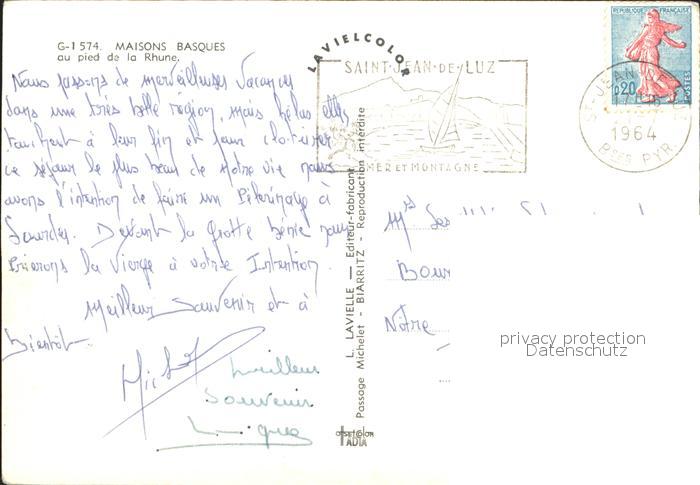 G-1574. MAISONS BASQUES
au pied de la Rhune.
Nous passons de merveilleuses vacances
dans une très belle région, mais hélas elles
touchent à leur fin et pour cloturer
ce séjour le plus beau de notre vie nous
avons l'intention de faire un Pélerinage à
Lourdes. Devant la grotte bénie nous
Prierons la Vierge à votre Intention.
Meilleur Souvenir et à
bientôt.
meilleur
souvenir
LAVIELCOLOR
L. LAVIELLE — Editeur-fabricant
Passage Michelet - BIARRITZ - Reproduction interdite
offset color
IADTA
SAINT-JEAN-DE-LUZ
MER ET MONTAGNE
REPUBLIQUE FRANÇAISE
0,20
POSTES
ST-JEAN DE LUZ
1964
BSES PYR.
Notre
privacy protection
Datenschutz